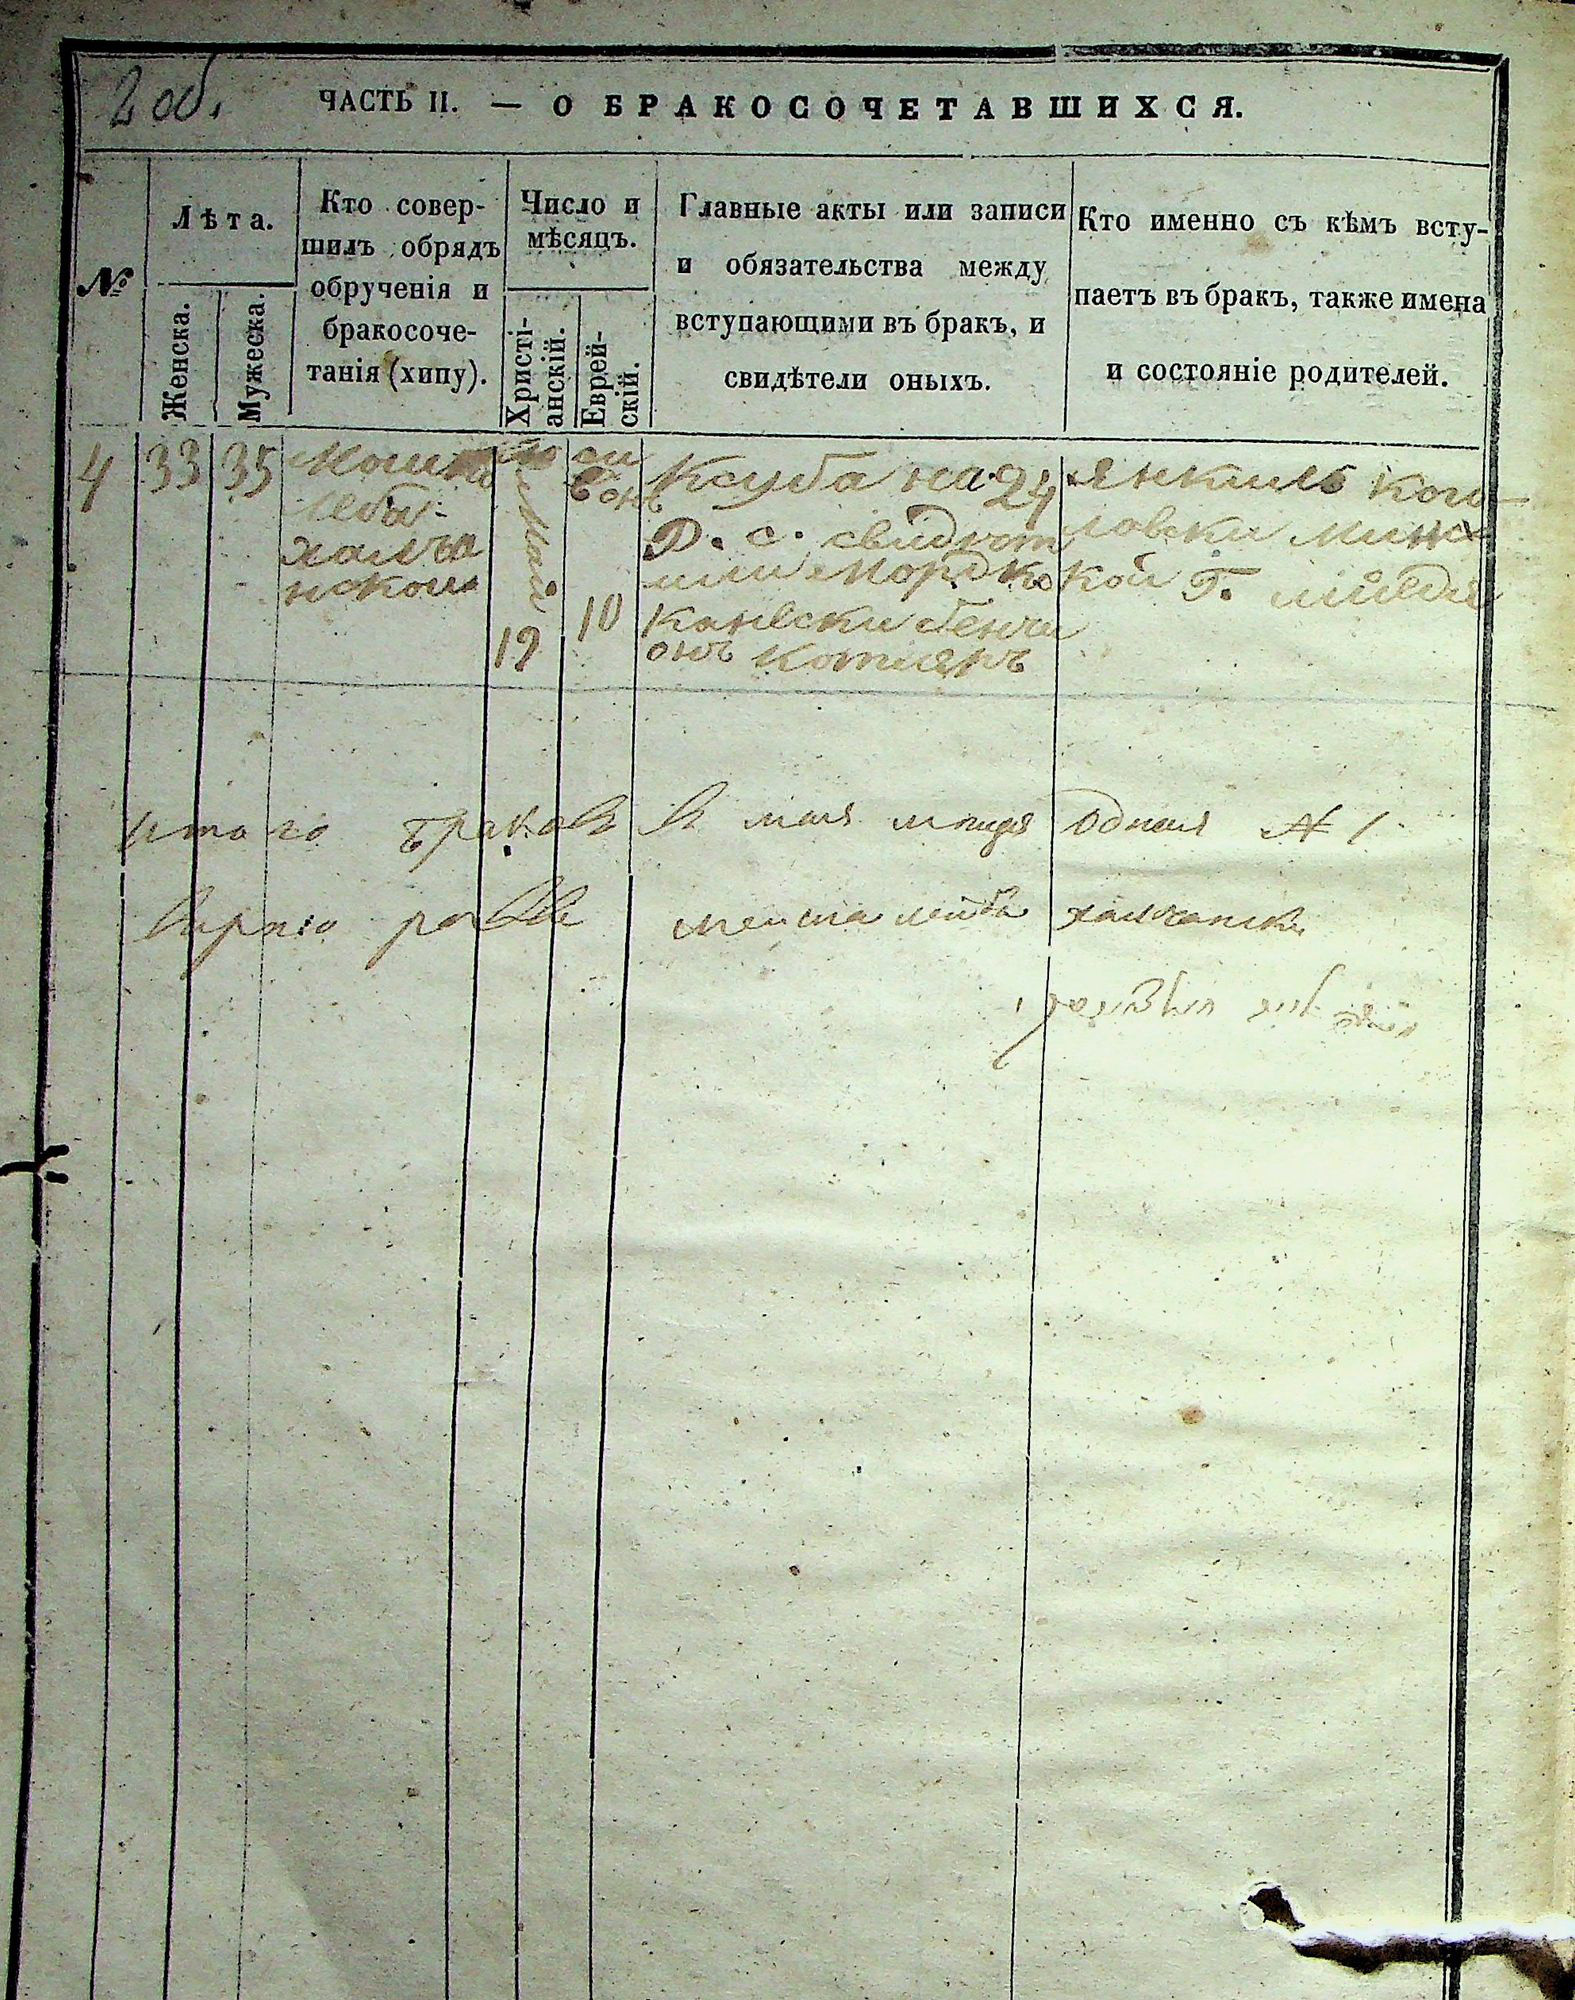 2 об.
ЧАСТЬ II. — О БРАКОСОЧЕТАВШИХСЯ.
№
Лѣта.
Женска.
Мужеска.
Кто совер-
шилъ обрядъ
обрученія и
бракосоче-
танія (хипу).
Число и
мѣсяцъ.
Христі-
анскій.
Еврей-
скій.
Главные акты или записи
и обязательства между
вступающими въ бракъ, и
свидѣтели оныхъ.
Кто именно съ кѣмъ всту-
паетъ въ бракъ, также имена
и состояніе родителей.
4
33
35
леба
халъча
нскои
Май
19
10
Ксуба на 24
Р. с. свидѣт
или Мордко
Каневски бенчи
онъ котляръ
Янкиль Кого-
ловски минс
кой Г.
итого браковъ в мая одная № 1
лейба халчански